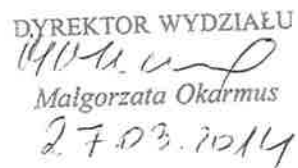 DYREKTOR WYDZIAŁU
Małgorzata Okarmus
27.03.2014